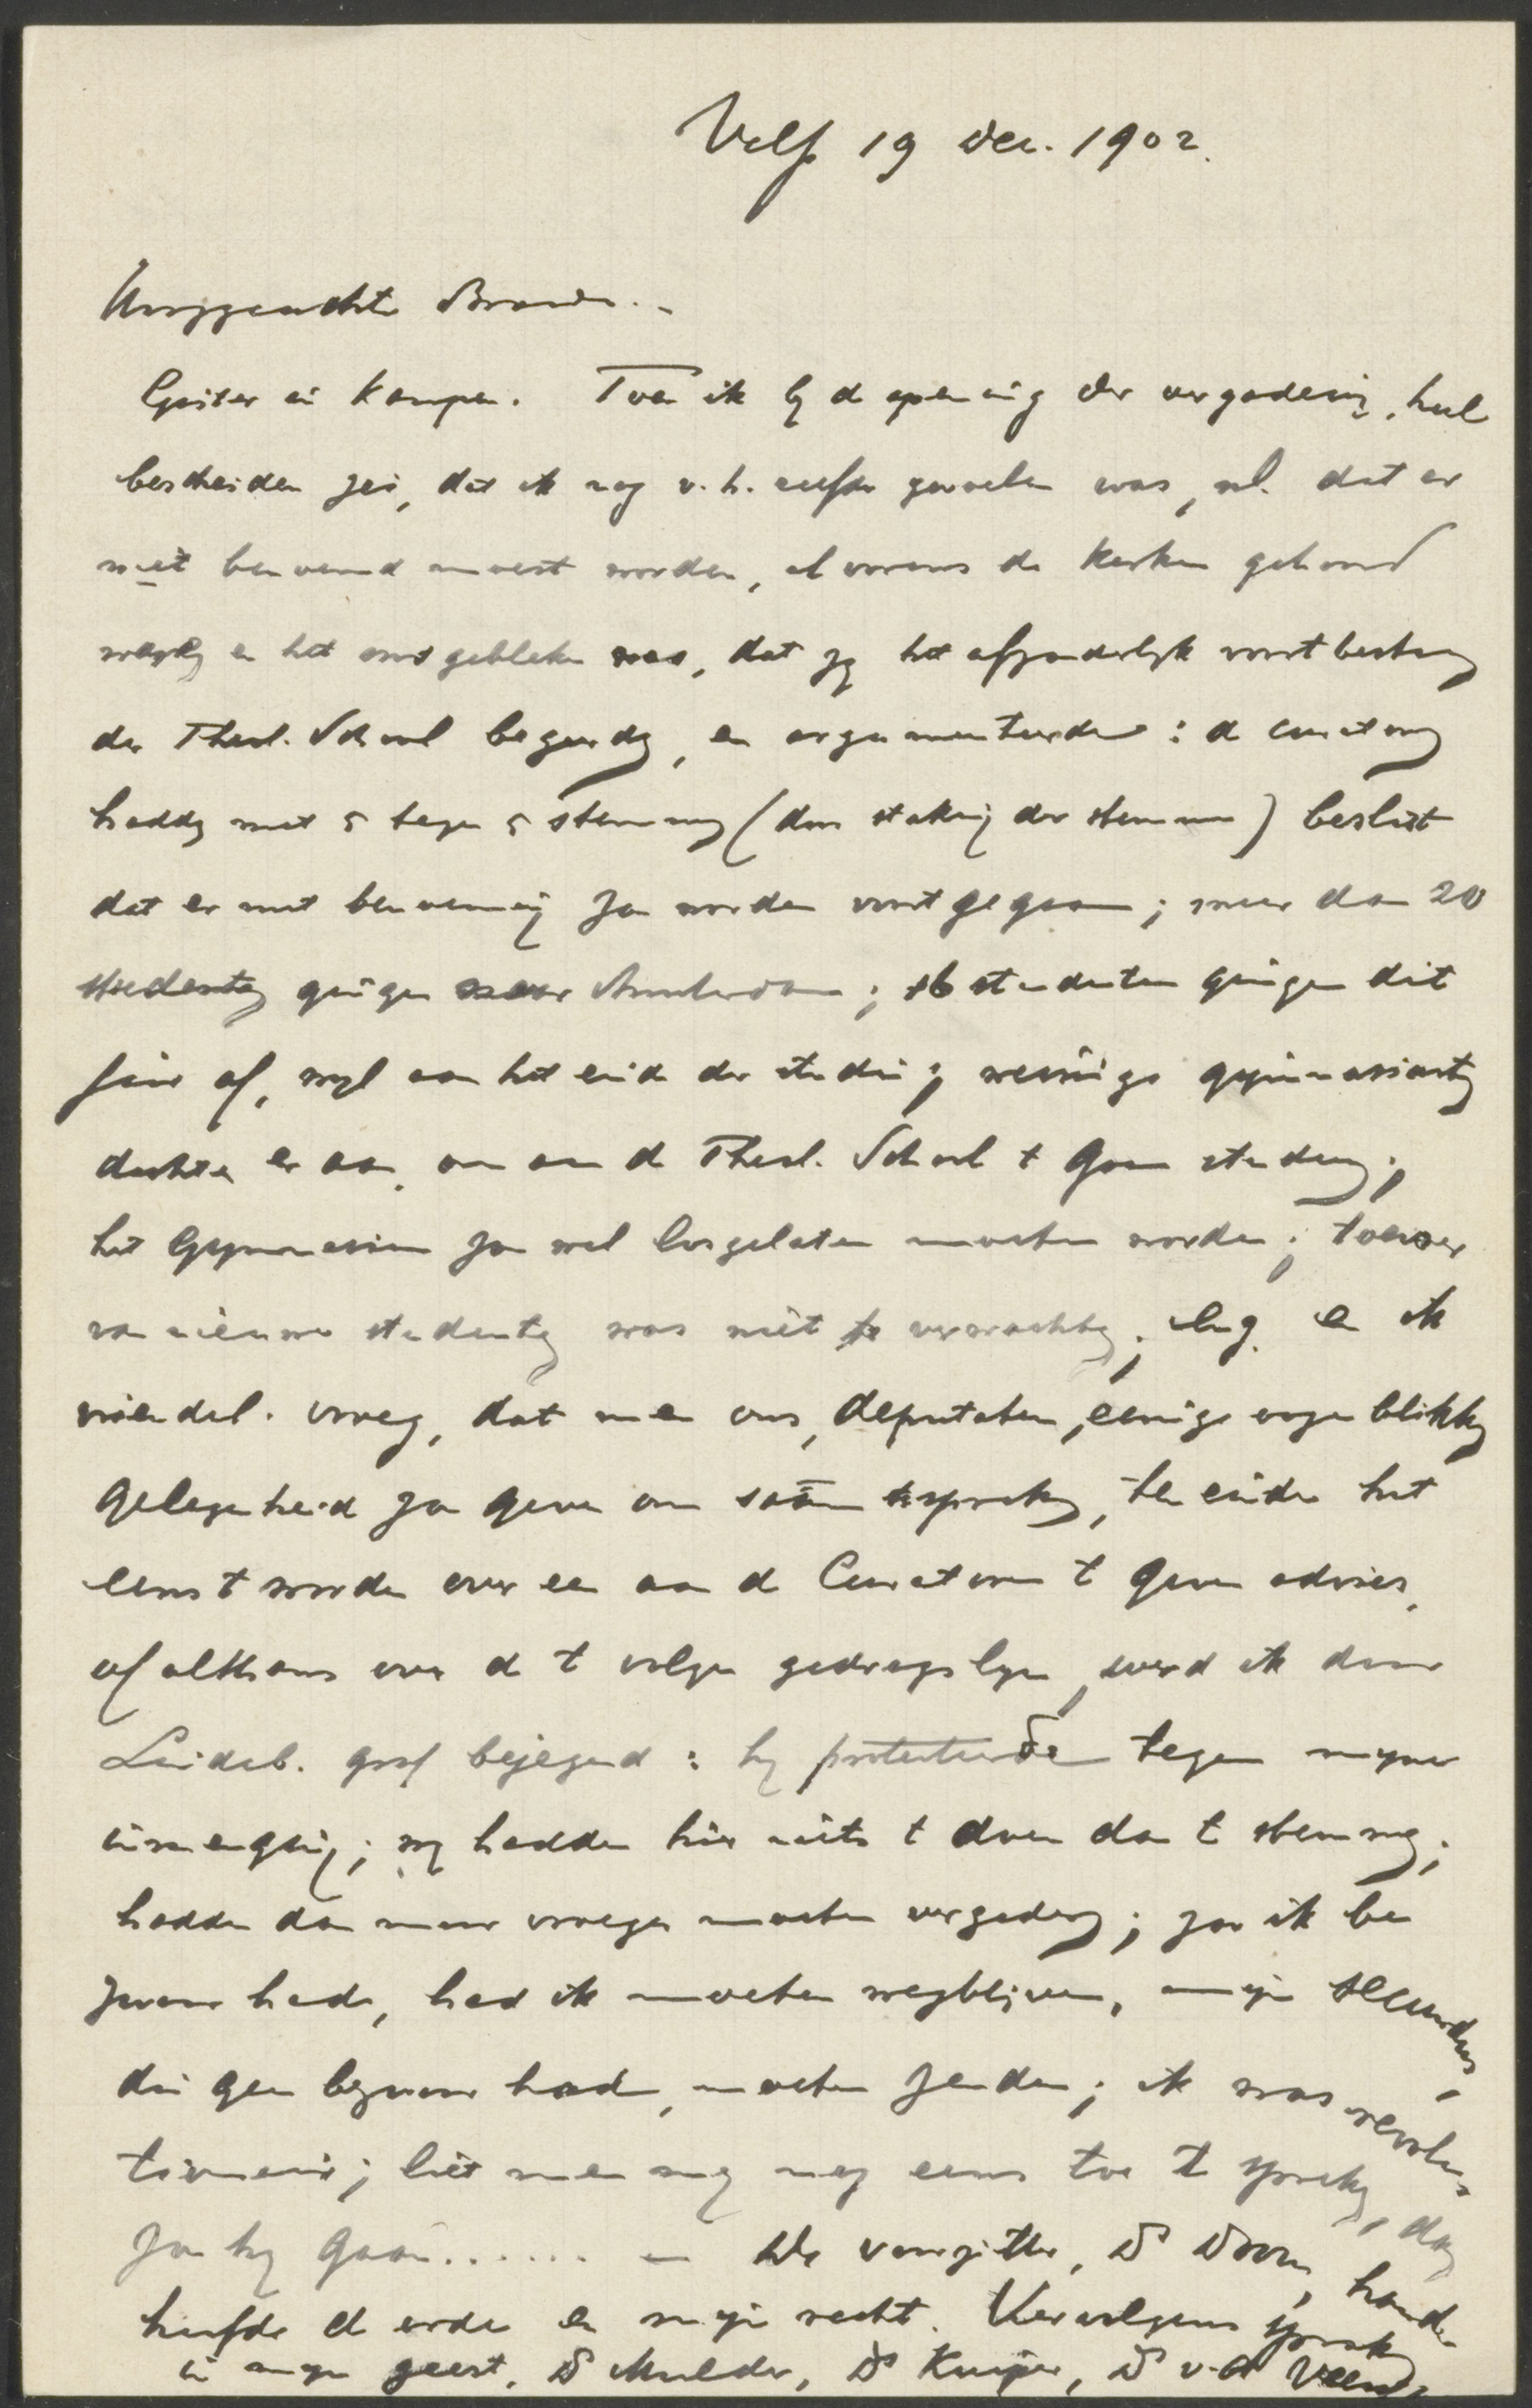 Velp 19 Dec. 1902.
Hooggeachte Broeder. -
Gister in Kampen. Toen ik bij d opening der vergadering, heel
bescheiden zei, dat ik nog v. h. zelfde gevoelen was, nl. dat er
niet benoemd moest worden, alvorens de kerken gehoord
waren en het ons gebleken was, dat zij het afzonderlijk voortbestaan
der Theol. School begeerden, en argumenteerde : d curatoren
hadden met 5 tegen 5 stemmen (dus staking der stemmen) beslist
dat er met benoeming zou worden voortgegaan ; meer dan 20
studenten gingen naar Amsterdam ; 16 studenten gingen dit
jaar af, wijl aan het eind der studiën ; weinige gymnasiasten
dachten er aan om aan d Theol. School t gaan studeeren ;
het Gymnasium zou wel losgelaten moeten worden ; toevoer
van nieuwe studenten was niet te verwachten ; enz. en ik
vriendel. vroeg, dat men ons, deputaten, eenige oogenblikken
gelegenheid zou geven om saâm te spreken, ten einde het
eens t worden over een aan d Curatoren t geven advies,
of althans over d t volgen gedragslijn, werd ik door
Lindeb. grof bejegend : hij protesteerde tegen mijne
inmenging ; wij hadden hier niets t doen dan t stemmen ;
hadden dan maar vroeger moeten vergaderen ; zoo ik be
zwaar hade, had ik moeten wegblijven, mijn secundus,
die geen bezwaar had, moeten zenden ; ik was revolu-
tionair ; liet men mij nog eens toe t spreken, dan
zou hij gaan ....... — De voorzitter, Ds Doorn, hand-
haafde d orde en mijn recht. Vervolgens spraken
in mijn geest, Ds Mulder, Ds Kuiper, Ds v. d Veen